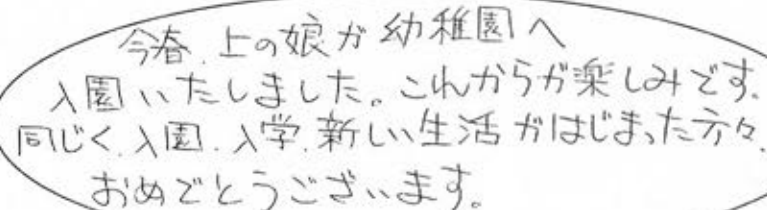 今春、上の娘が幼稚園へ
入園いたしました。これからが楽しみです。
同じく、入園、入学、新しい生活がはじまった方々、
おめでとうございます。